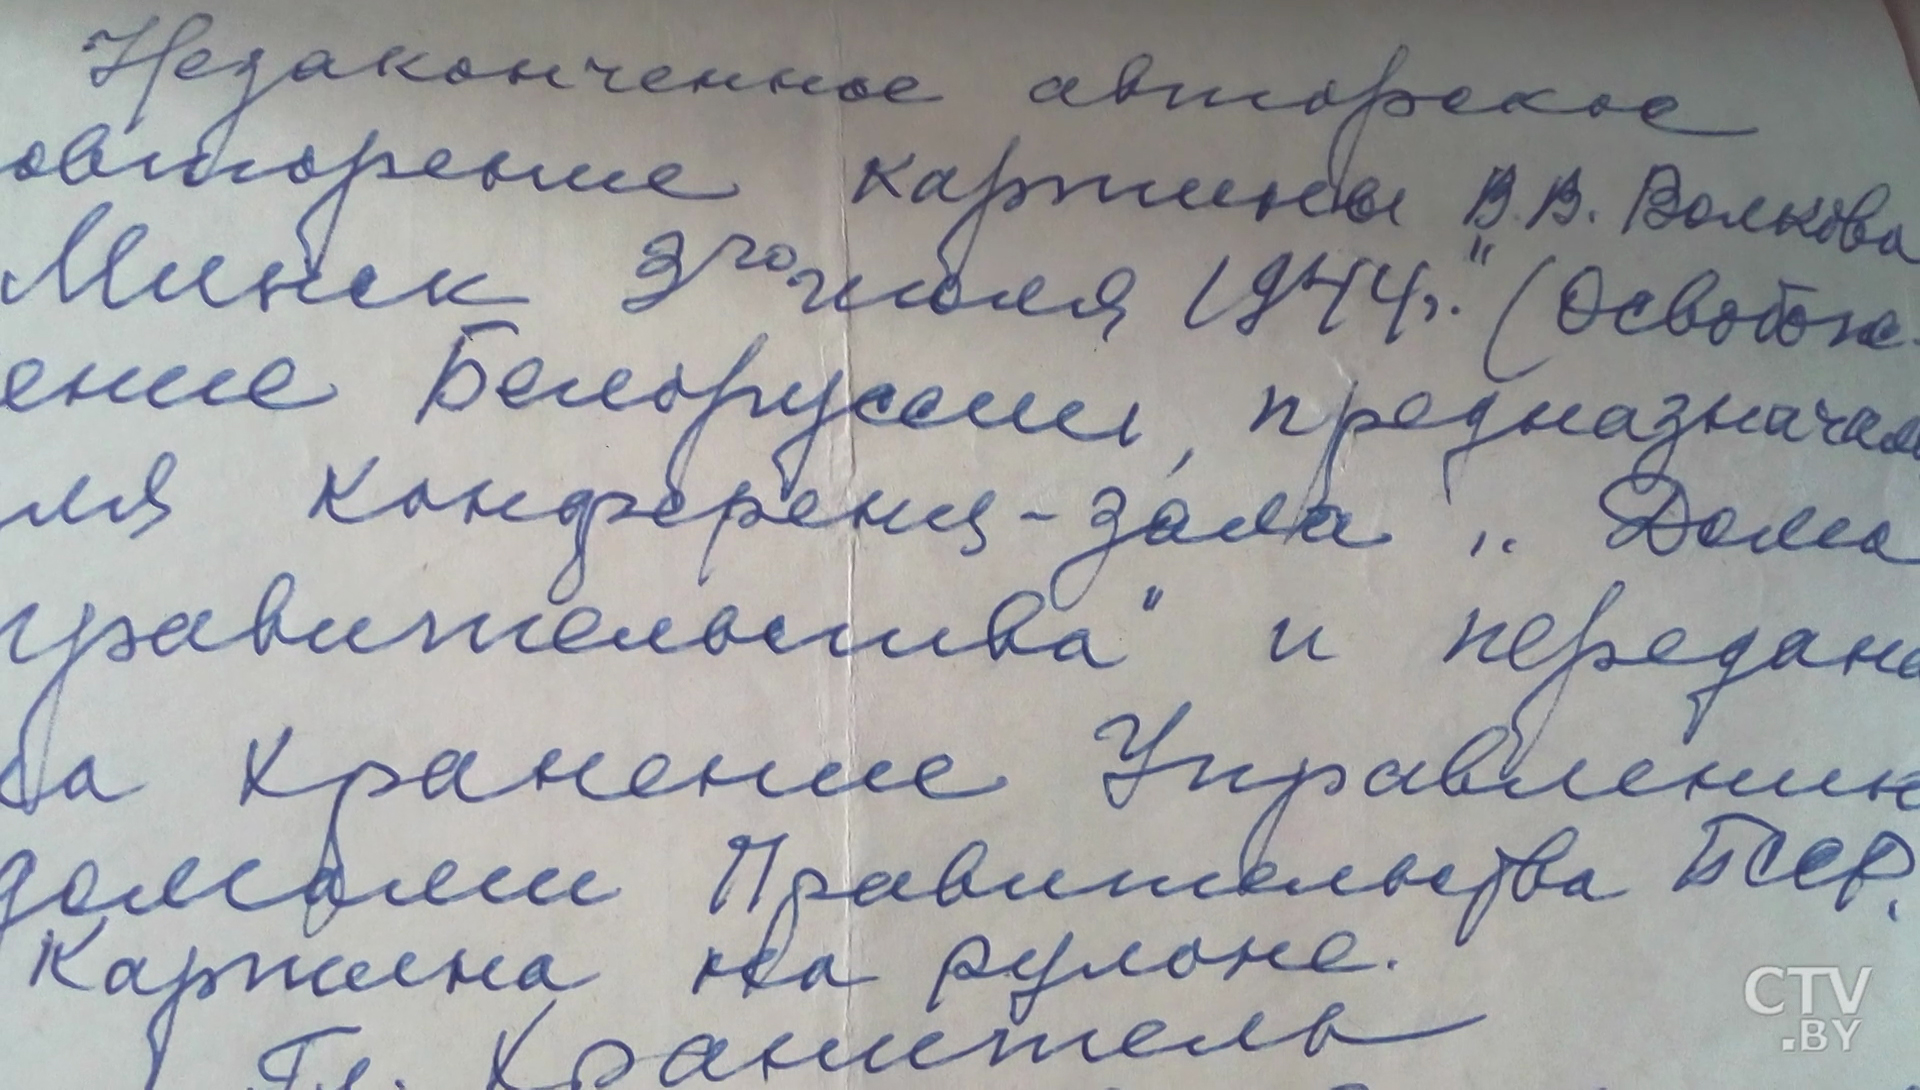 Незаконченное авторское
овторение картины В.В. Волкова
Минск 3го июля 1944г." (Освобож-
ение Белоруссии, предназначал
ля конференц-зала „Дома
правительства" и передано
ба хранение Управлению
домами Правительства БССР.
Картина на рулоне.
Гл. Хранитель
CTV
.BY